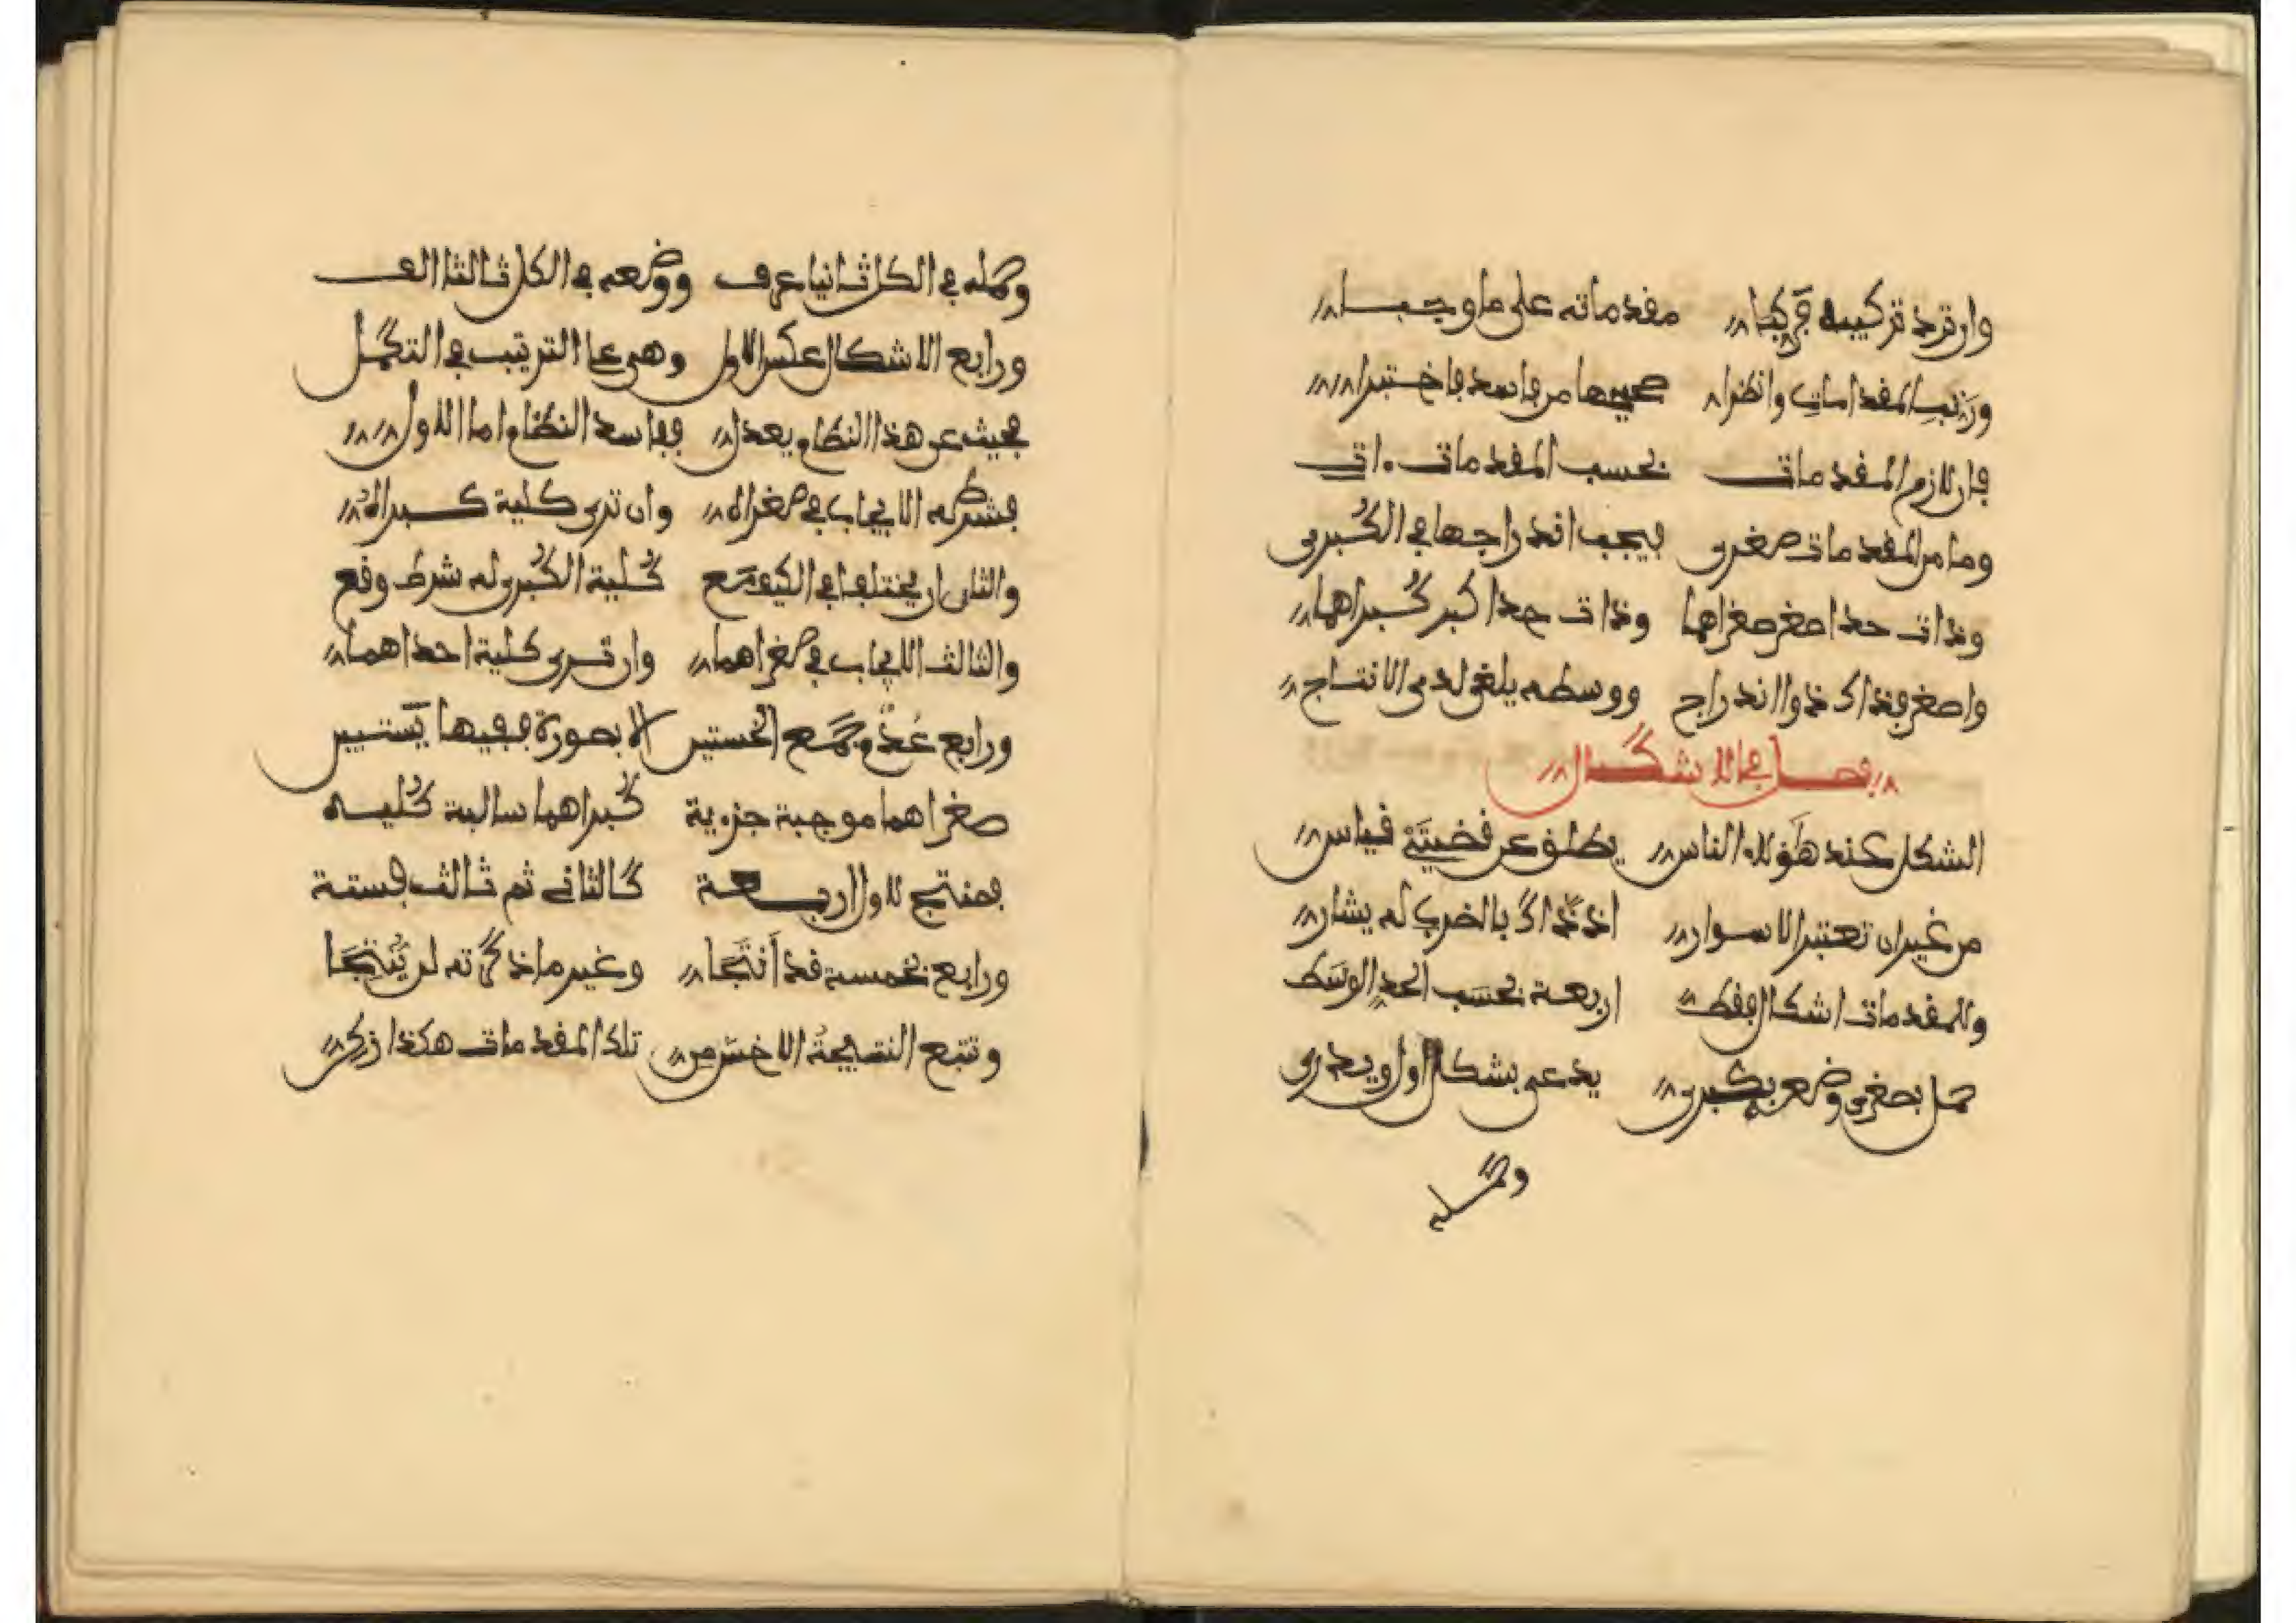 وان ترد تركيبه فركبا مقدماته على ما وجبا
ورتب المقدمات وانظرا صحيحها من فاسد فاختبرا
فان لازم المقدمات بحسب المقدمات ءات
وما من المقدمات صغرى فيجب اندراجها في الكبرى
وذات حد اصغر صغراهما وذات حد اكبر كبراهما
واصغر فذاك ذو اندراج ووسط يلغى لدى الانتاج
فصل في الاشكال
الشكل عند هؤلاء الناس يطلق عن قضيتي قياس
من غير ان تعتبر الاسوار اذ ذاك بالضرب له يشار
وللمقدمات اشكال فقط اربعة بحسب الحد الوسط
حمل بصغرى وضع بكبرى يدعى بشكل اول ويدرى
وحمله
وحمله في الكل ثانيا عرف ووضعه في الكل ثالثا الف
ورابع الاشكال عكس الاول وهي على الترتيب في التكمل
فحيث عن هذا النظام يعدل ففاسد النظام اما الاول
فشرطه الايجاب في صغراه وان ترى كلية كبراه
والثان ان يختلفا في الكيف مع كلية الكبرى له شرط وقع
والثالث الايجاب في صغراهما وان ترى كلية احداهما
ورابع عدم جمع الخستين الا بصورة ففيها يستبين
صغراهما موجبة جزءية كبراهما سالبة كليه
فمنتج لاول اربعة كالثاني ثم ثالث فستة
ورابع بخمسة قد انتجا وغير ما ذكرته لن ينتجا
وتتبع النتيجة الاخس من تلك المقدمات هكذا زكن